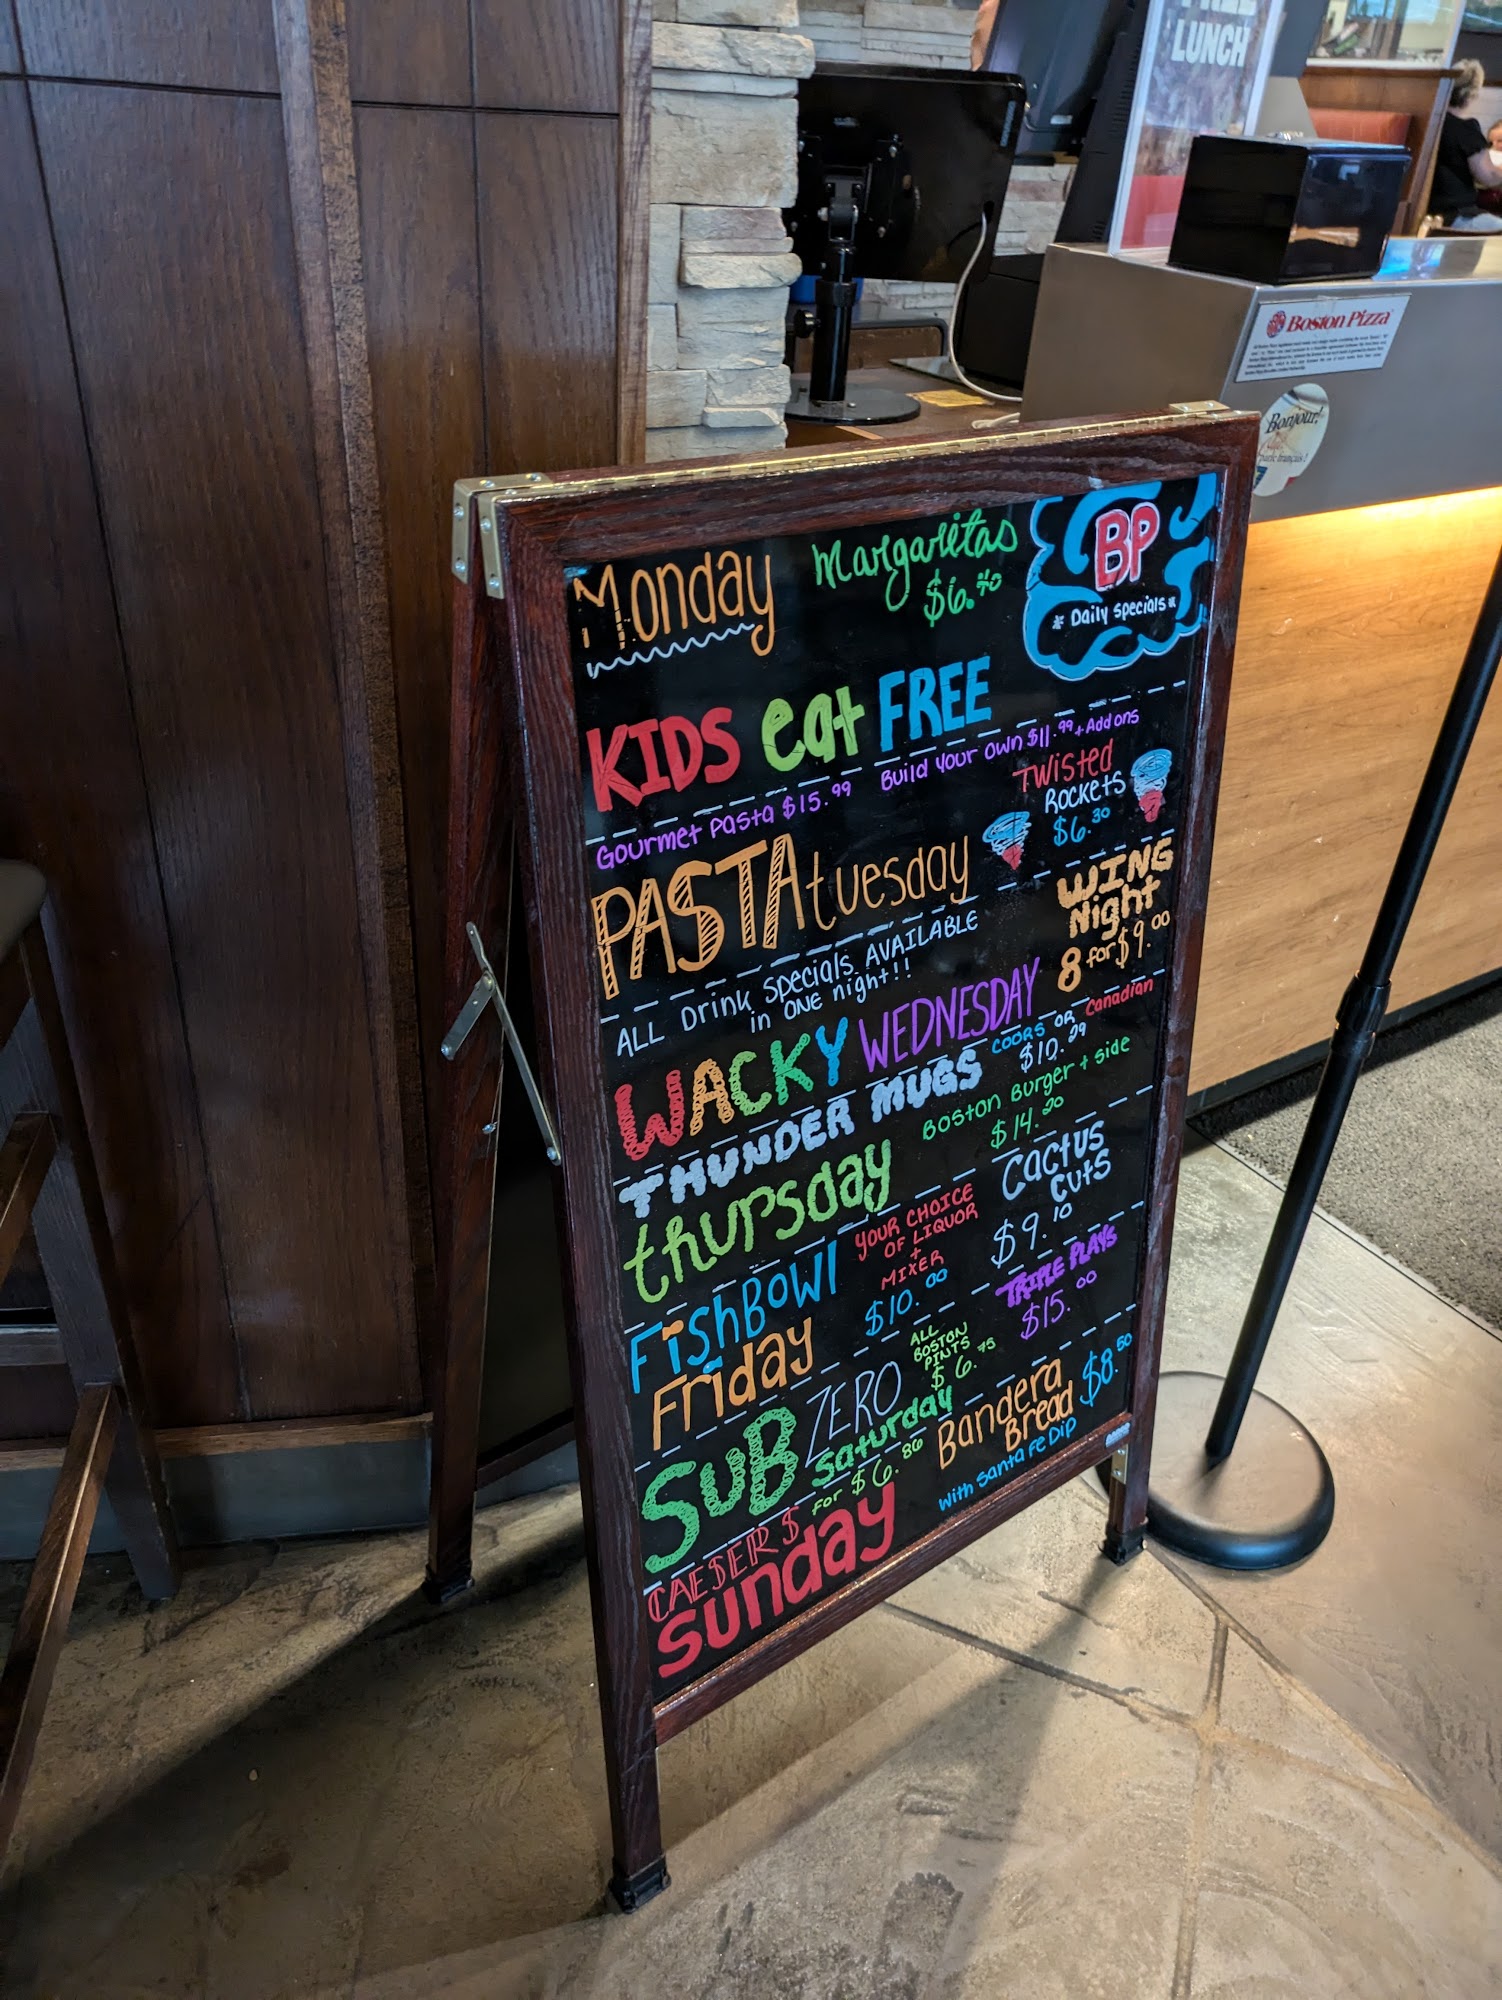 FREE
LUNCH
Boston Pizza
Bonjour!
Monday
Margaritas
$6.40
BP
* Daily Specials *
KIDS eat FREE
Gourmet Pasta $15.99
Build your Own $11.99 + Add ons
PASTA tuesday
Twisted
Rockets
$6.30
ALL Drink Specials AVAILABLE
in ONE night!!
WING
Night
8 for $9.00
WACKY WEDNESDAY
THUNDER MUGS
COORS OR Canadian
$10.29
thursday
Boston Burger + side
$14.20
FishBowl
Friday
YOUR CHOICE
OF LIQUOR
+
MIXER
$10.00
Cactus
Cuts
$9.10
SUB ZERO
Saturday
ALL
BOSTON
PINTS
$6.75
TRIPLE PLAYS
$15.00
CAESER'S for $6.86
Sunday
Bandera
Bread $8.50
with Santa Fe Dip